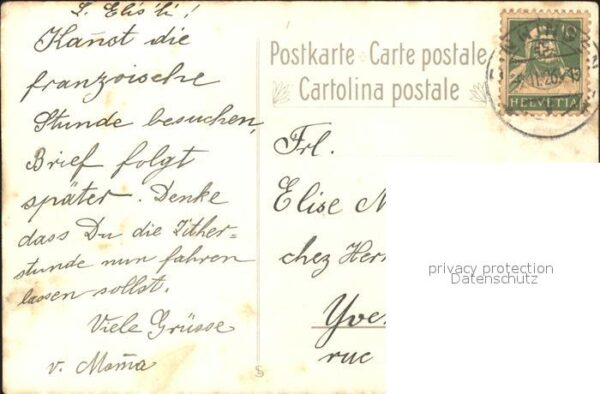 L. Elis'li!
Kan̄ot die
franzoische
Stunde besuchen,
Brief folgt
später. Denke
dass Du die Zither-
stunde nun fahren
lassen sollst.
Viele Grüsse
v. Mam̄a
Postkarte Carte postale
Cartolina postale
HELVETIA
Frl.
Elise
chez
Yve.
rue
privacy protection
Datenschutz